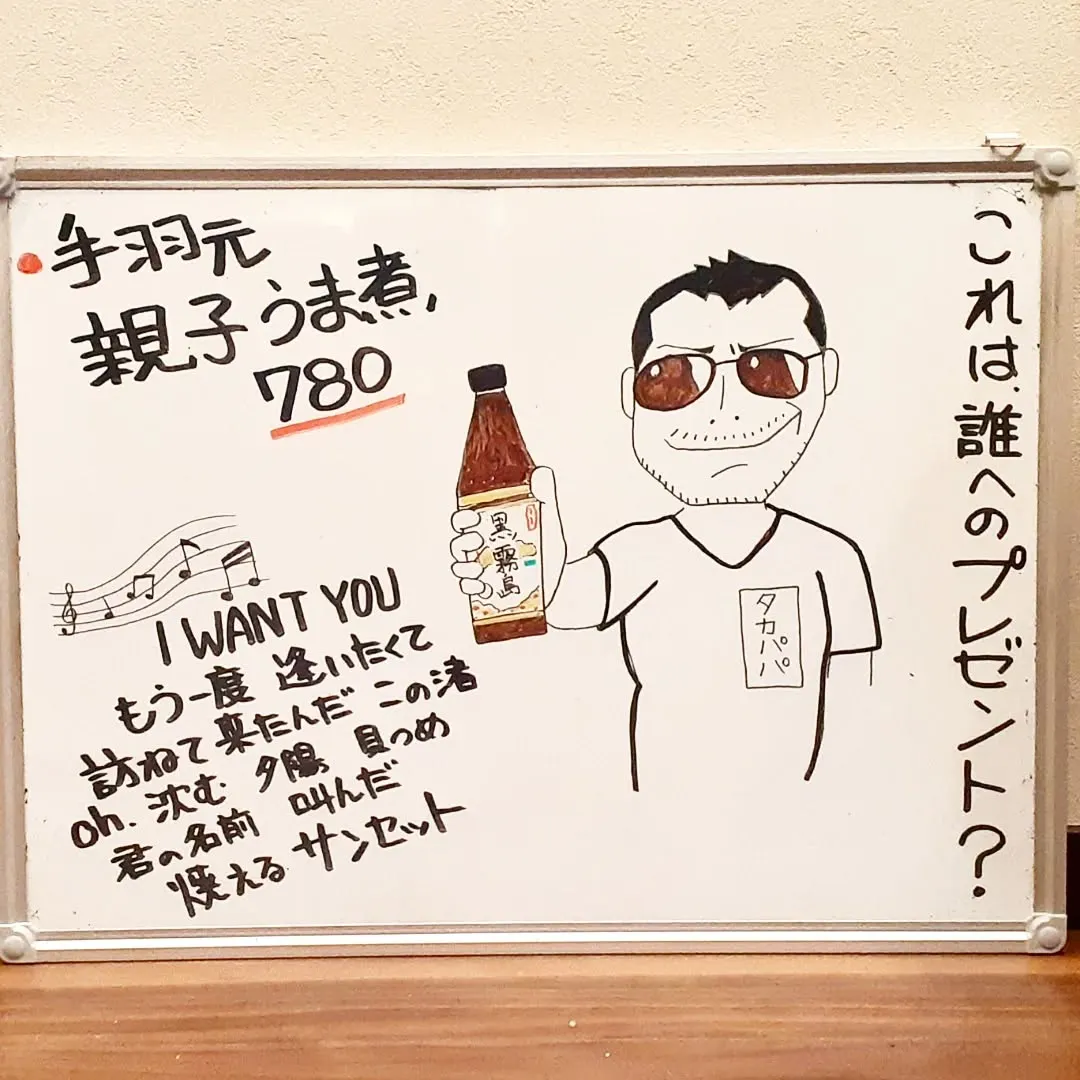 手羽元
親子うま煮
780
I WANT YOU
もう一度 逢いたくて
訪ねて来たんだ この渚
oh. 沈む 夕陽 見つめ
君の名前 叫んだ
燃える サンセット
黒霧島
タカパパ
これは、誰へのプレゼント？